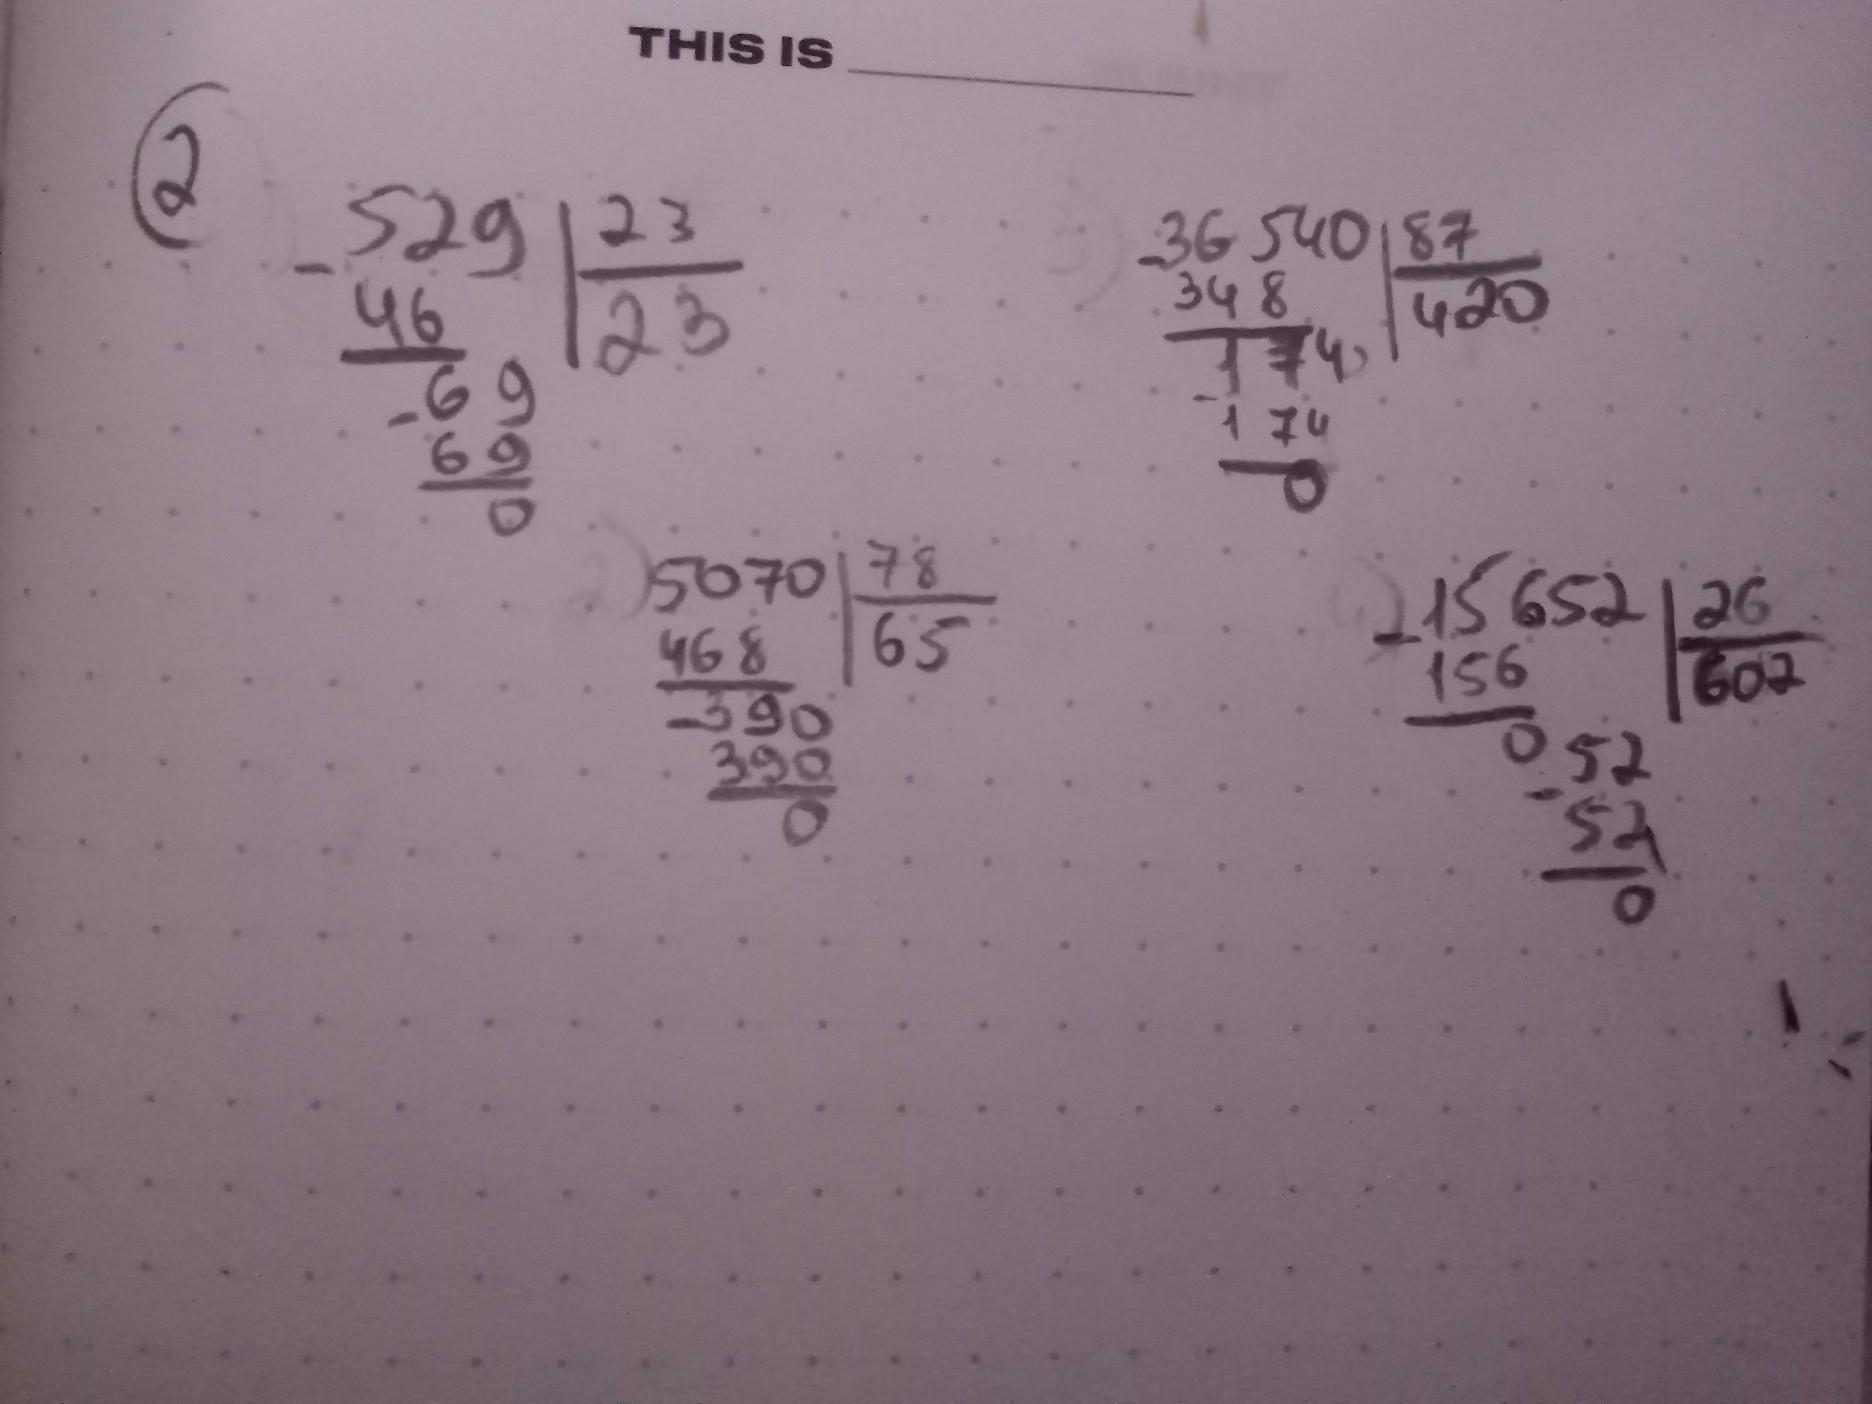 THIS IS
2
- 529 | 23
46 | 23
- 69
69
0
3) - 36 540 | 87
348 | 420
174
- 174
0
2) 5070 | 78
468 | 65
- 390
390
0
4) - 15652 | 26
156 | 602
0 52
- 52
0